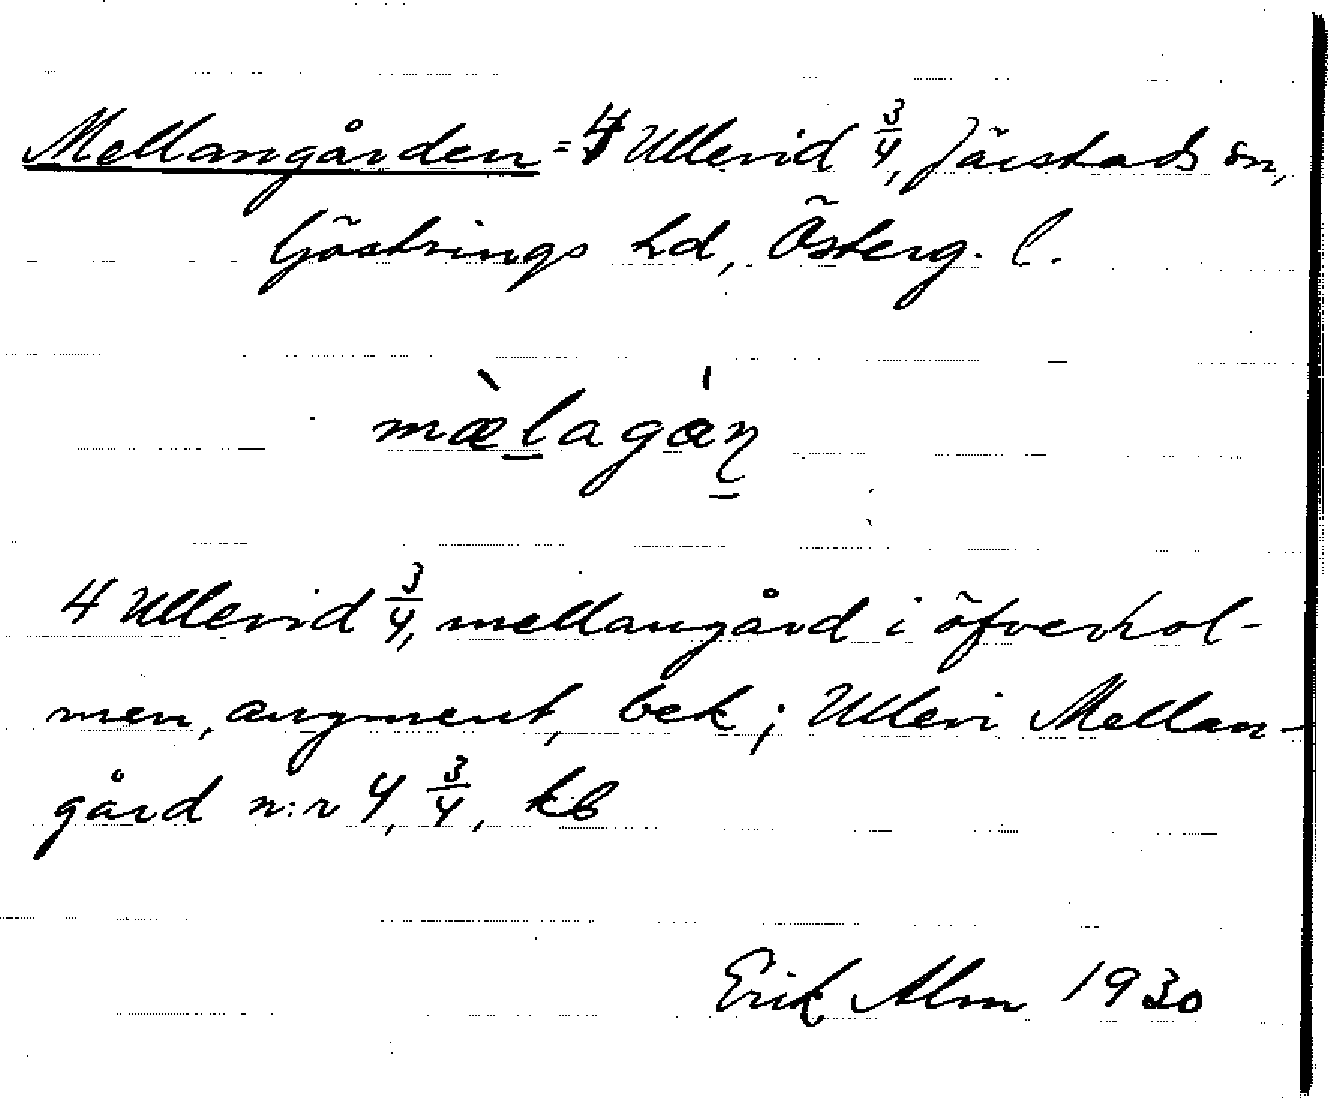 Mellangården = 4 Ullevid 3/4, Järstads sn,
Göstrings hd, Österg. l.
mæ̀lagá̱ɳ
4 Ullevid 3/4, mellangård i öfverhol-
men, augment, bek; Ullevi Mellan-
gård n:r 4, 3/4, kb
Erik Alm 1930